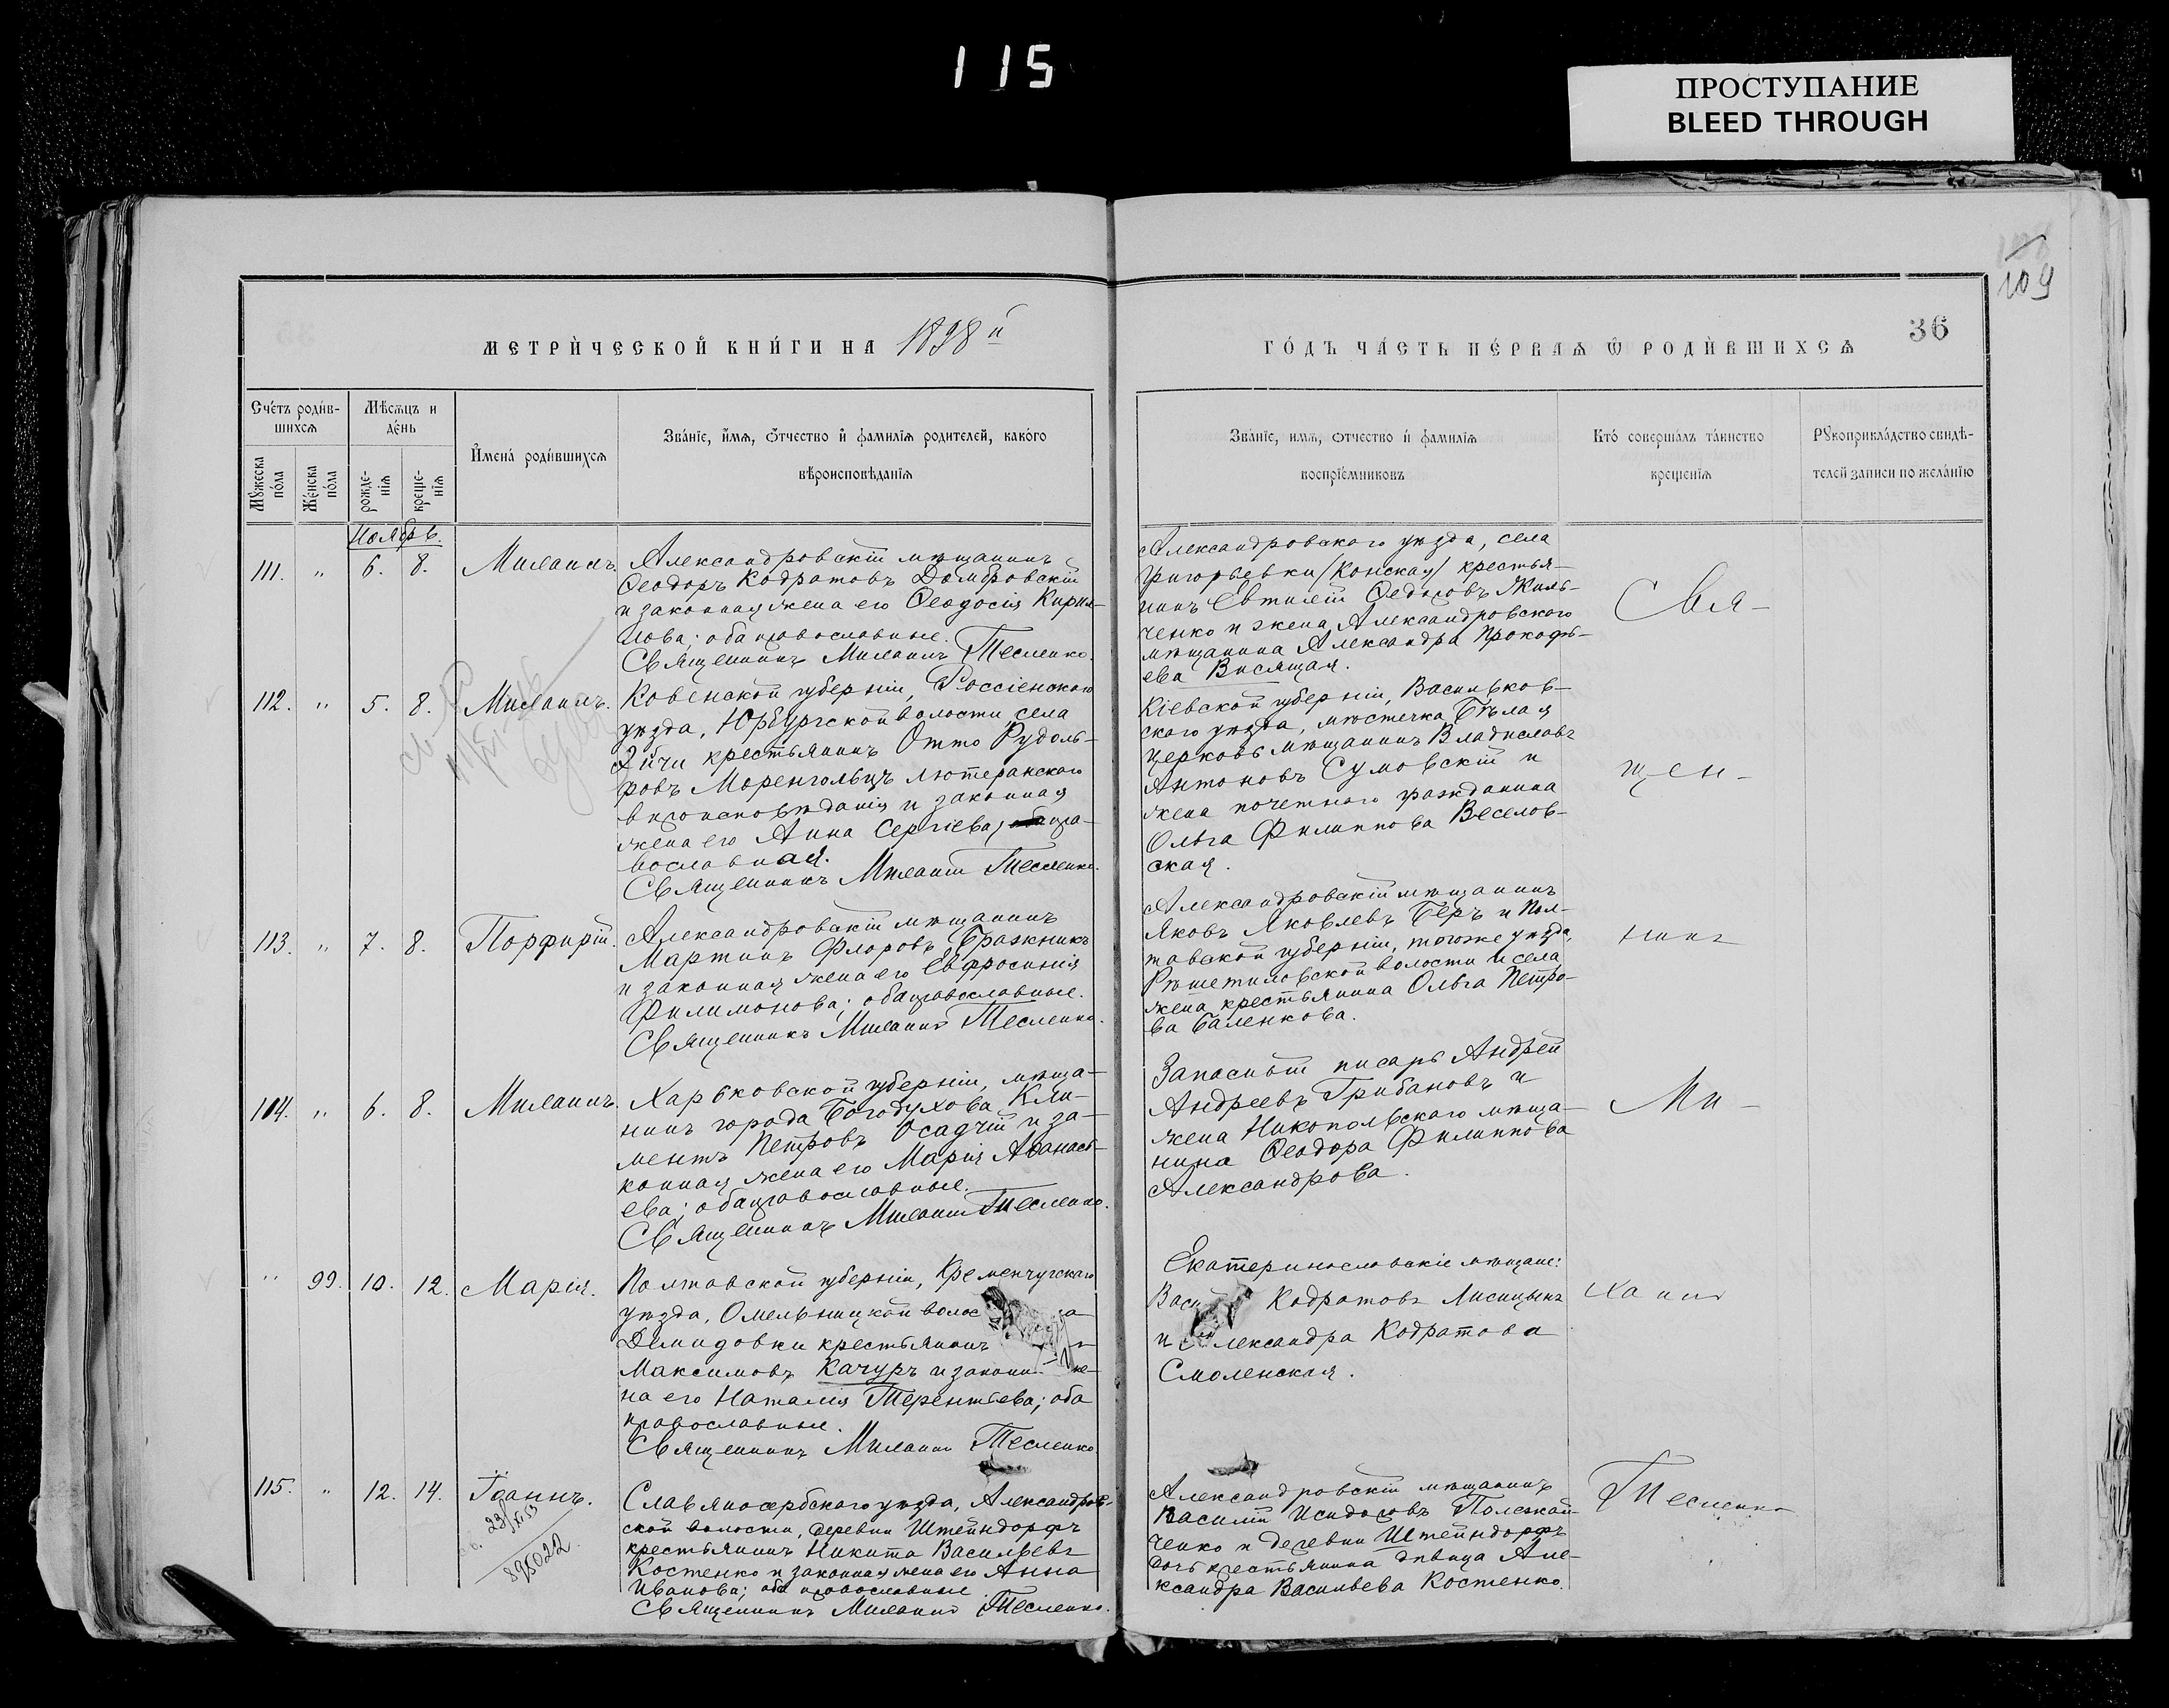 115
ПРОСТУПАНИЕ
BLEED THROUGH
109
36
МЕТРИ́ЧЕСКОЙ КНИ́ГИ НА 1898й
ГО́ДЪ ЧА́СТЬ ПЕ́РВАѦ Ѿ РОДИ́ВШИХСѦ
Сче́тъ роди́в-
шихсѧ
Мѣ́сѧцъ и
де́нь
Мꙋжеска
по́ла
Же́нска
по́ла
рожде-
нїѧ
креще-
нїѧ
И҆мена̀ роди́вшихсѧ
Зва́нїе, и҆́мѧ, ѻ҆́тчество и҆ фамилїѧ родителей, како́гѡ
вѣроисповѣданїѧ
Зва́нїе, имѧ, ѻтчество и҆ фамилїѧ
воспрїемниковъ
Кто̀ соверша́лъ та́инство
крещенїѧ
Рꙋкоприкла́дство свидѣ-
телей записи по жела́нїю
Ноябрь.
111. " 6. 8. Михаилъ.
Александровскій мѣщанинъ
Ѳеодоръ Кодратовъ Домбровскій
и законная жена его Ѳеодосія Кирил-
лова; оба православные.
Священникъ Михаилъ Тесленко.
Александровскаго уѣзда, села
Григорьевки /Конская/ крестья-
нинъ Евтихій Ѳедоровъ Жиль-
ченко и жена Александровскаго
мѣщанина Александра Прокофь-
ева Висящая.
Свя-
112. " 5. 8. Михаилъ.
Ковенской губерніи, Россіенскаго
уѣзда, Юрбургской волости, села
крестьянинъ Отто Рудоль-
фовъ Моренгольцъ лютеранскаго
вѣроисповѣданія и законная
жена его Анна Сергіева, пра-
вославная.
Священникъ Михаилъ Тесленко.
Кіевской губерніи, Васильков-
скаго уѣзда, мѣстечка Бѣлая
Церковь мѣщанинъ Владиславъ
Антоновъ Сумовскій и
жена почетнаго гражданина
Ольга Филиппова Веселов-
ская.
щен-
113. " 7. 8. Порфирій.
Александровскій мѣщанинъ
Мартинъ Флоровъ Бражникъ
и законная жена его Евфросинія
Филимонова; оба православные.
Священникъ Михаилъ Тесленко.
Александровскій мѣщанинъ
Яковъ Яковлевъ Беръ и Пол-
тавской губерніи, того же уѣзда,
Рѣшетиловской волости и села
жена крестьянина Ольга Петро-
ва Баленкова.
никъ
114. " 6. 8. Михаилъ.
Харьковской губерніи, мѣща-
нинъ города Богодухова Кли-
ментъ Петровъ Осадчій и за-
конная жена его Марія Аѳанась-
ева; оба православные.
Священникъ Михаилъ Тесленко.
Запасный писарь Андрей
Андреевъ Грибановъ и
жена Никопольскаго мѣща-
нина Ѳеодора Филиппова
Александрова.
Ми-
" 99. 10. 12. Марія.
Полтавской губерніи, Кременчугскаго
уѣзда, Омельницкой волос
Демидовки крестьянинъ
Максимовъ Качуръ и законн же-
на его Наталія Терентьева; оба
православные.
Священникъ Михаилъ Тесленко.
Екатеринославскіе мѣщане:
Васи Кодратовъ Лисицынъ
и Александра Кодратова
Смоленская.
хаилъ
115. " 12. 14. Іоаннъ.
895022
Славяносербскаго уѣзда, Александров-
ской волости, деревни Штейндорфъ
крестьянинъ Никита Васильевъ
Костенко и законная жена его Анна
Иванова; оба православные.
Священникъ Михаилъ Тесленко.
Александровскій мѣщанинъ
Василій Исидоровъ Полежай-
ченко и деревни Штейндорфъ
дочь крестьянина дѣвица Але-
ксандра Васильева Костенко.
Тесленко